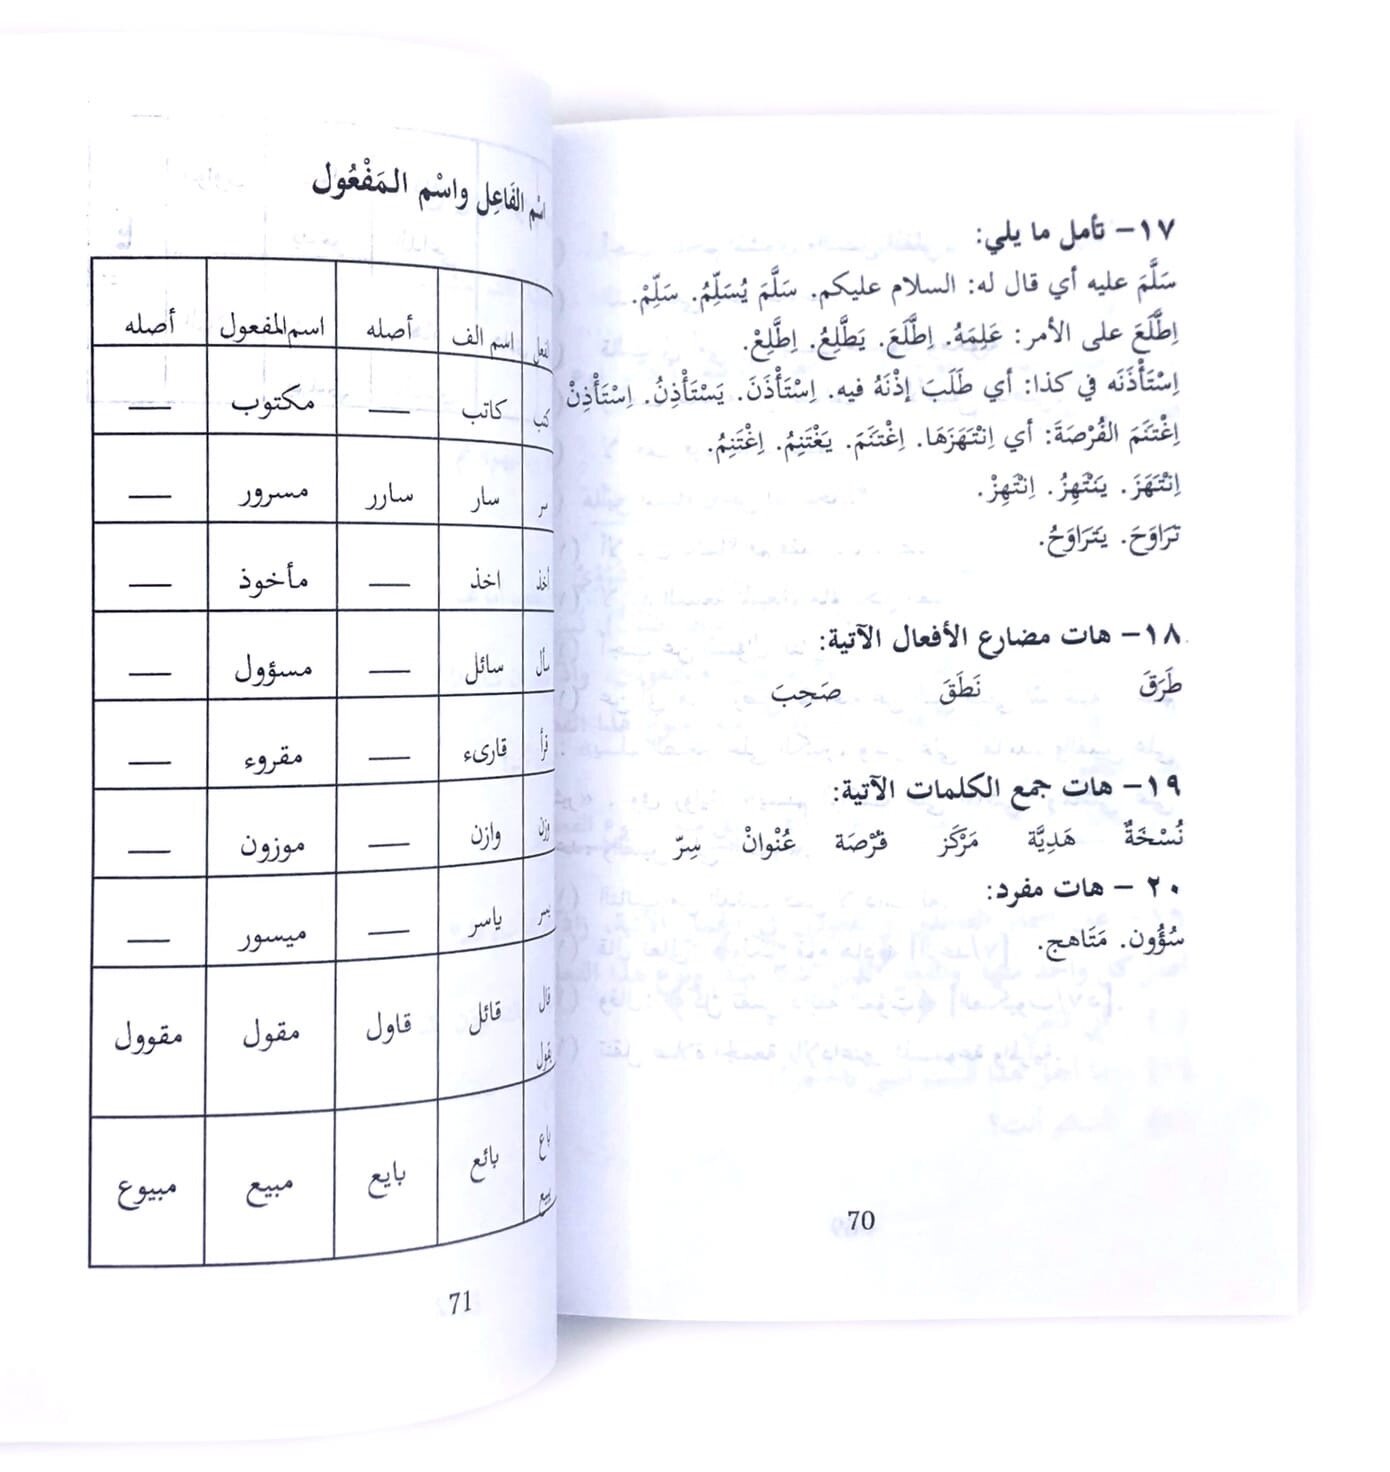 ١٧- تأمل ما يلي:
سَلَّمَ عليه أي قال له: السلام عليكم. سَلَّمَ يُسَلِّمُ. سَلِّمْ.
اِطَّلَعَ على الأمر: عَلِمَهُ. اِطَّلَعَ. يَطَّلِعُ. اِطَّلِعْ.
اِسْتَأْذَنَه في كذا: أي طَلَبَ إذْنَهُ فيه. اِسْتَأْذَنَ. يَسْتَأْذِنُ. اِسْتَأْذِنْ
اِغْتَنَمَ الفُرْصَةَ: أي اِنْتَهَزَهَا. اِغْتَنَمَ. يَغْتَنِمُ. اِغْتَنِمُ.
اِنْتَهَزَ. يَنْتْهِزُ. اِنْتَهِزْ.
تَرَاوَحَ. يَتَرَاوَحُ.
١٨- هات مضارع الأفعال الآتية:
طَرَقَ نَطَقَ صَحِبَ
١٩- هات جمع الكلمات الآتية:
نُسْخَةٌ هَدِيَّة مَرْكَز فُرْصَة عُنْوانْ سِرّ
٢٠- هات مفرد:
سُؤُون. مَتَاهج.
70
اسْم الفَاعِل واسْم المَفْعُول
الفعل اسم الف أصله اسم المفعول أصله
كتب كاتب — مكتوب —
سر سار سارر مسرور —
أخذ اخذ — مأخوذ —
سأل سائل — مسؤول —
قرأ قارىء — مقروء —
وزن وازن — موزون —
يسر ياسر — ميسور —
قال يقول قائل قاول مقول مقوول
باع يبيع بائع بايع مبيع مبيوع
71